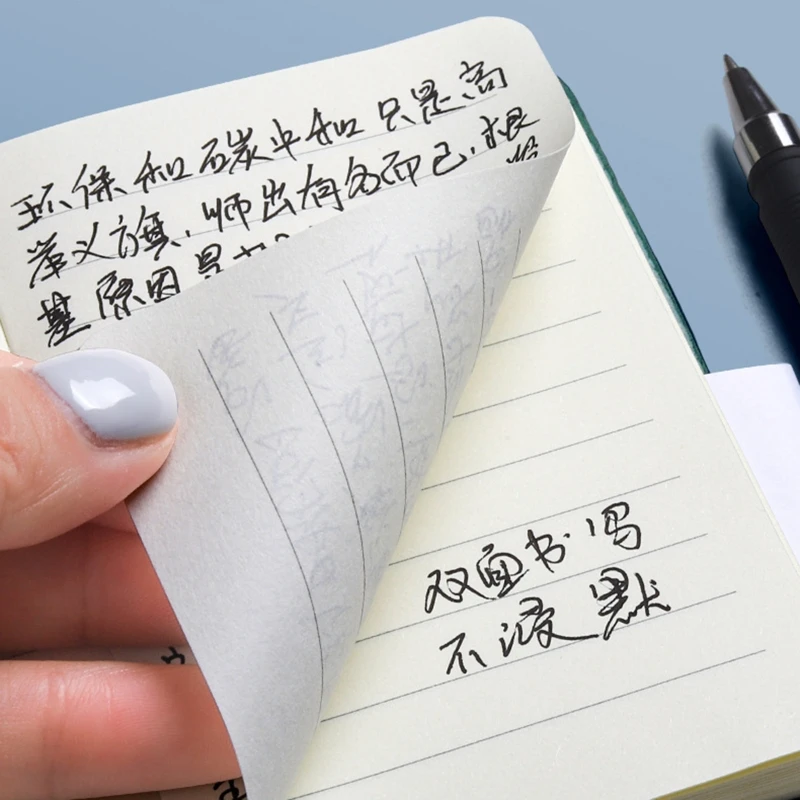 环保和碳中和只是高
举义旗，师出有名而已，根
基原因是
双面书写
不浸墨